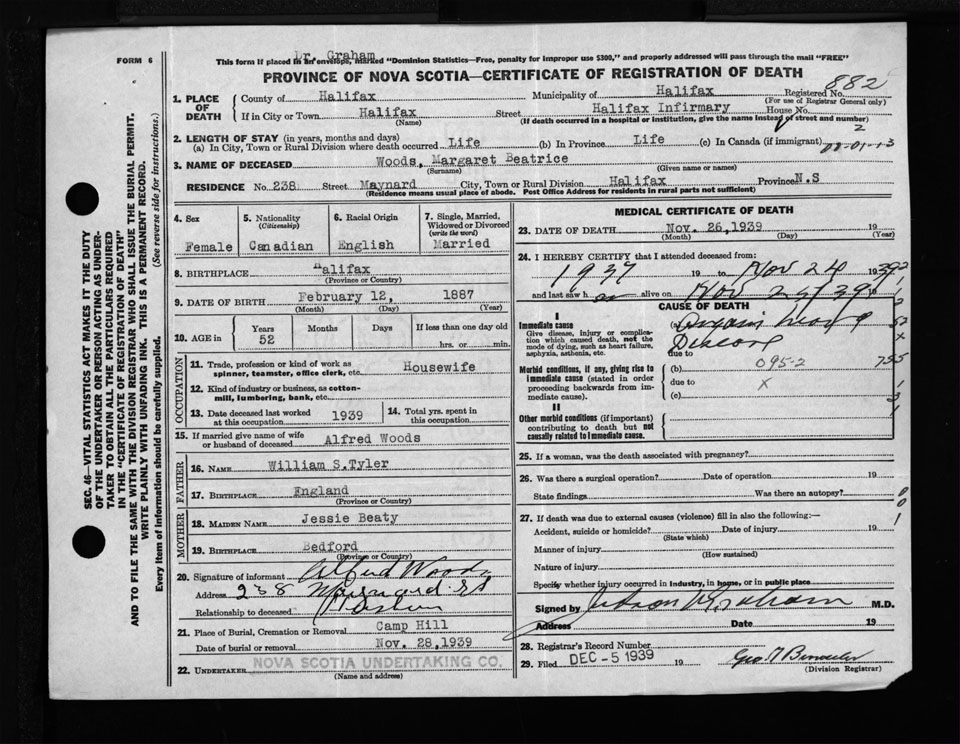 Dr. Graham
FORM 6
This form if placed in an envelope, marked "Dominion Statistics—Free, penalty for improper use $300," and properly addressed will pass through the mail "FREE"
PROVINCE OF NOVA SCOTIA—CERTIFICATE OF REGISTRATION OF DEATH
882
1. PLACE OF DEATH
County of Halifax Municipality of Halifax Registered No.
(For use of Registrar General only)
If in City or Town Halifax Street Halifax Infirmary House No.
(Name) (If death occurred in a hospital or institution, give the name instead of street and number)
2
2. LENGTH OF STAY (in years, months and days)
(a) In City, Town or Rural Division where death occurred Life (b) In Province Life (c) In Canada (if immigrant)
3. NAME OF DECEASED Woods, Margaret Beatrice
(Surname) (Given name or names)
RESIDENCE No. 238 Street Maynard City, Town or Rural Division Halifax Province N.S
(Residence means usual place of abode. Post Office Address for residents in rural parts not sufficient)
4. Sex Female
5. Nationality (Citizenship) Canadian
6. Racial Origin English
7. Single, Married, Widowed or Divorced (write the word) Married
8. BIRTHPLACE Halifax
(Province or Country)
9. DATE OF BIRTH February 12, 1887
(Month) (Day) (Year)
10. AGE in Years 52 Months Days If less than one day old
hrs. or min.
OCCUPATION
11. Trade, profession or kind of work as spinner, teamster, office clerk, etc. Housewife
12. Kind of industry or business, as cotton-mill, lumbering, bank, etc.
13. Date deceased last worked at this occupation 1939 14. Total yrs. spent in this occupation
15. If married give name of wife or husband of deceased Alfred Woods
FATHER
16. NAME William S.Tyler
17. BIRTHPLACE England
(Province or Country)
MOTHER
18. MAIDEN NAME Jessie Beaty
19. BIRTHPLACE Bedford
(Province or Country)
20. Signature of informant Alfred Woods
Address 238 Maynard St
Relationship to deceased
21. Place of Burial, Cremation or Removal Camp Hill
Date of burial or removal Nov. 28,1939
22. UNDERTAKER NOVA SCOTIA UNDERTAKING CO.
(Name and address)
MEDICAL CERTIFICATE OF DEATH
23. DATE OF DEATH Nov. 26,1939 19
(Month) (Day) (Year)
24. I HEREBY CERTIFY that I attended deceased from:
1937 19 to Nov 24 1939
and last saw h er alive on Nov 25/39 19
CAUSE OF DEATH
I
Immediate cause
Give disease, injury or complication which caused death, not the mode of dying, such as heart failure, asphyxia, asthenia, etc.
(a)
due to
095-2
Morbid conditions, if any, giving rise to immediate cause (stated in order proceeding backwards from immediate cause).
(b)
due to X
(c)
II
Other morbid conditions (if important) contributing to death but not causally related to immediate cause.
25. If a woman, was the death associated with pregnancy?
26. Was there a surgical operation? Date of operation 19
State findings Was there an autopsy?
27. If death was due to external causes (violence) fill in also the following:—
Accident, suicide or homicide? Date of injury 19
(State which)
Manner of injury
(How sustained)
Nature of injury
Specify whether injury occurred in industry, in home, or in public place
Signed by Judson V Graham M.D.
Address Date 19
28. Registrar's Record Number
29. Filed DEC - 5 1939 19
(Division Registrar)
SEC. 46—VITAL STATISTICS ACT MAKES IT THE DUTY
OF THE UNDERTAKER OR PERSON ACTING AS UNDER-
TAKER TO OBTAIN ALL THE PARTICULARS REQUIRED
IN THE "CERTIFICATE OF REGISTRATION OF DEATH"
AND TO FILE THE SAME WITH THE DIVISION REGISTRAR WHO SHALL ISSUE THE BURIAL PERMIT.
WRITE PLAINLY WITH UNFADING INK. THIS IS A PERMANENT RECORD.
Every item of information should be carefully supplied. (See reverse side for instructions.)